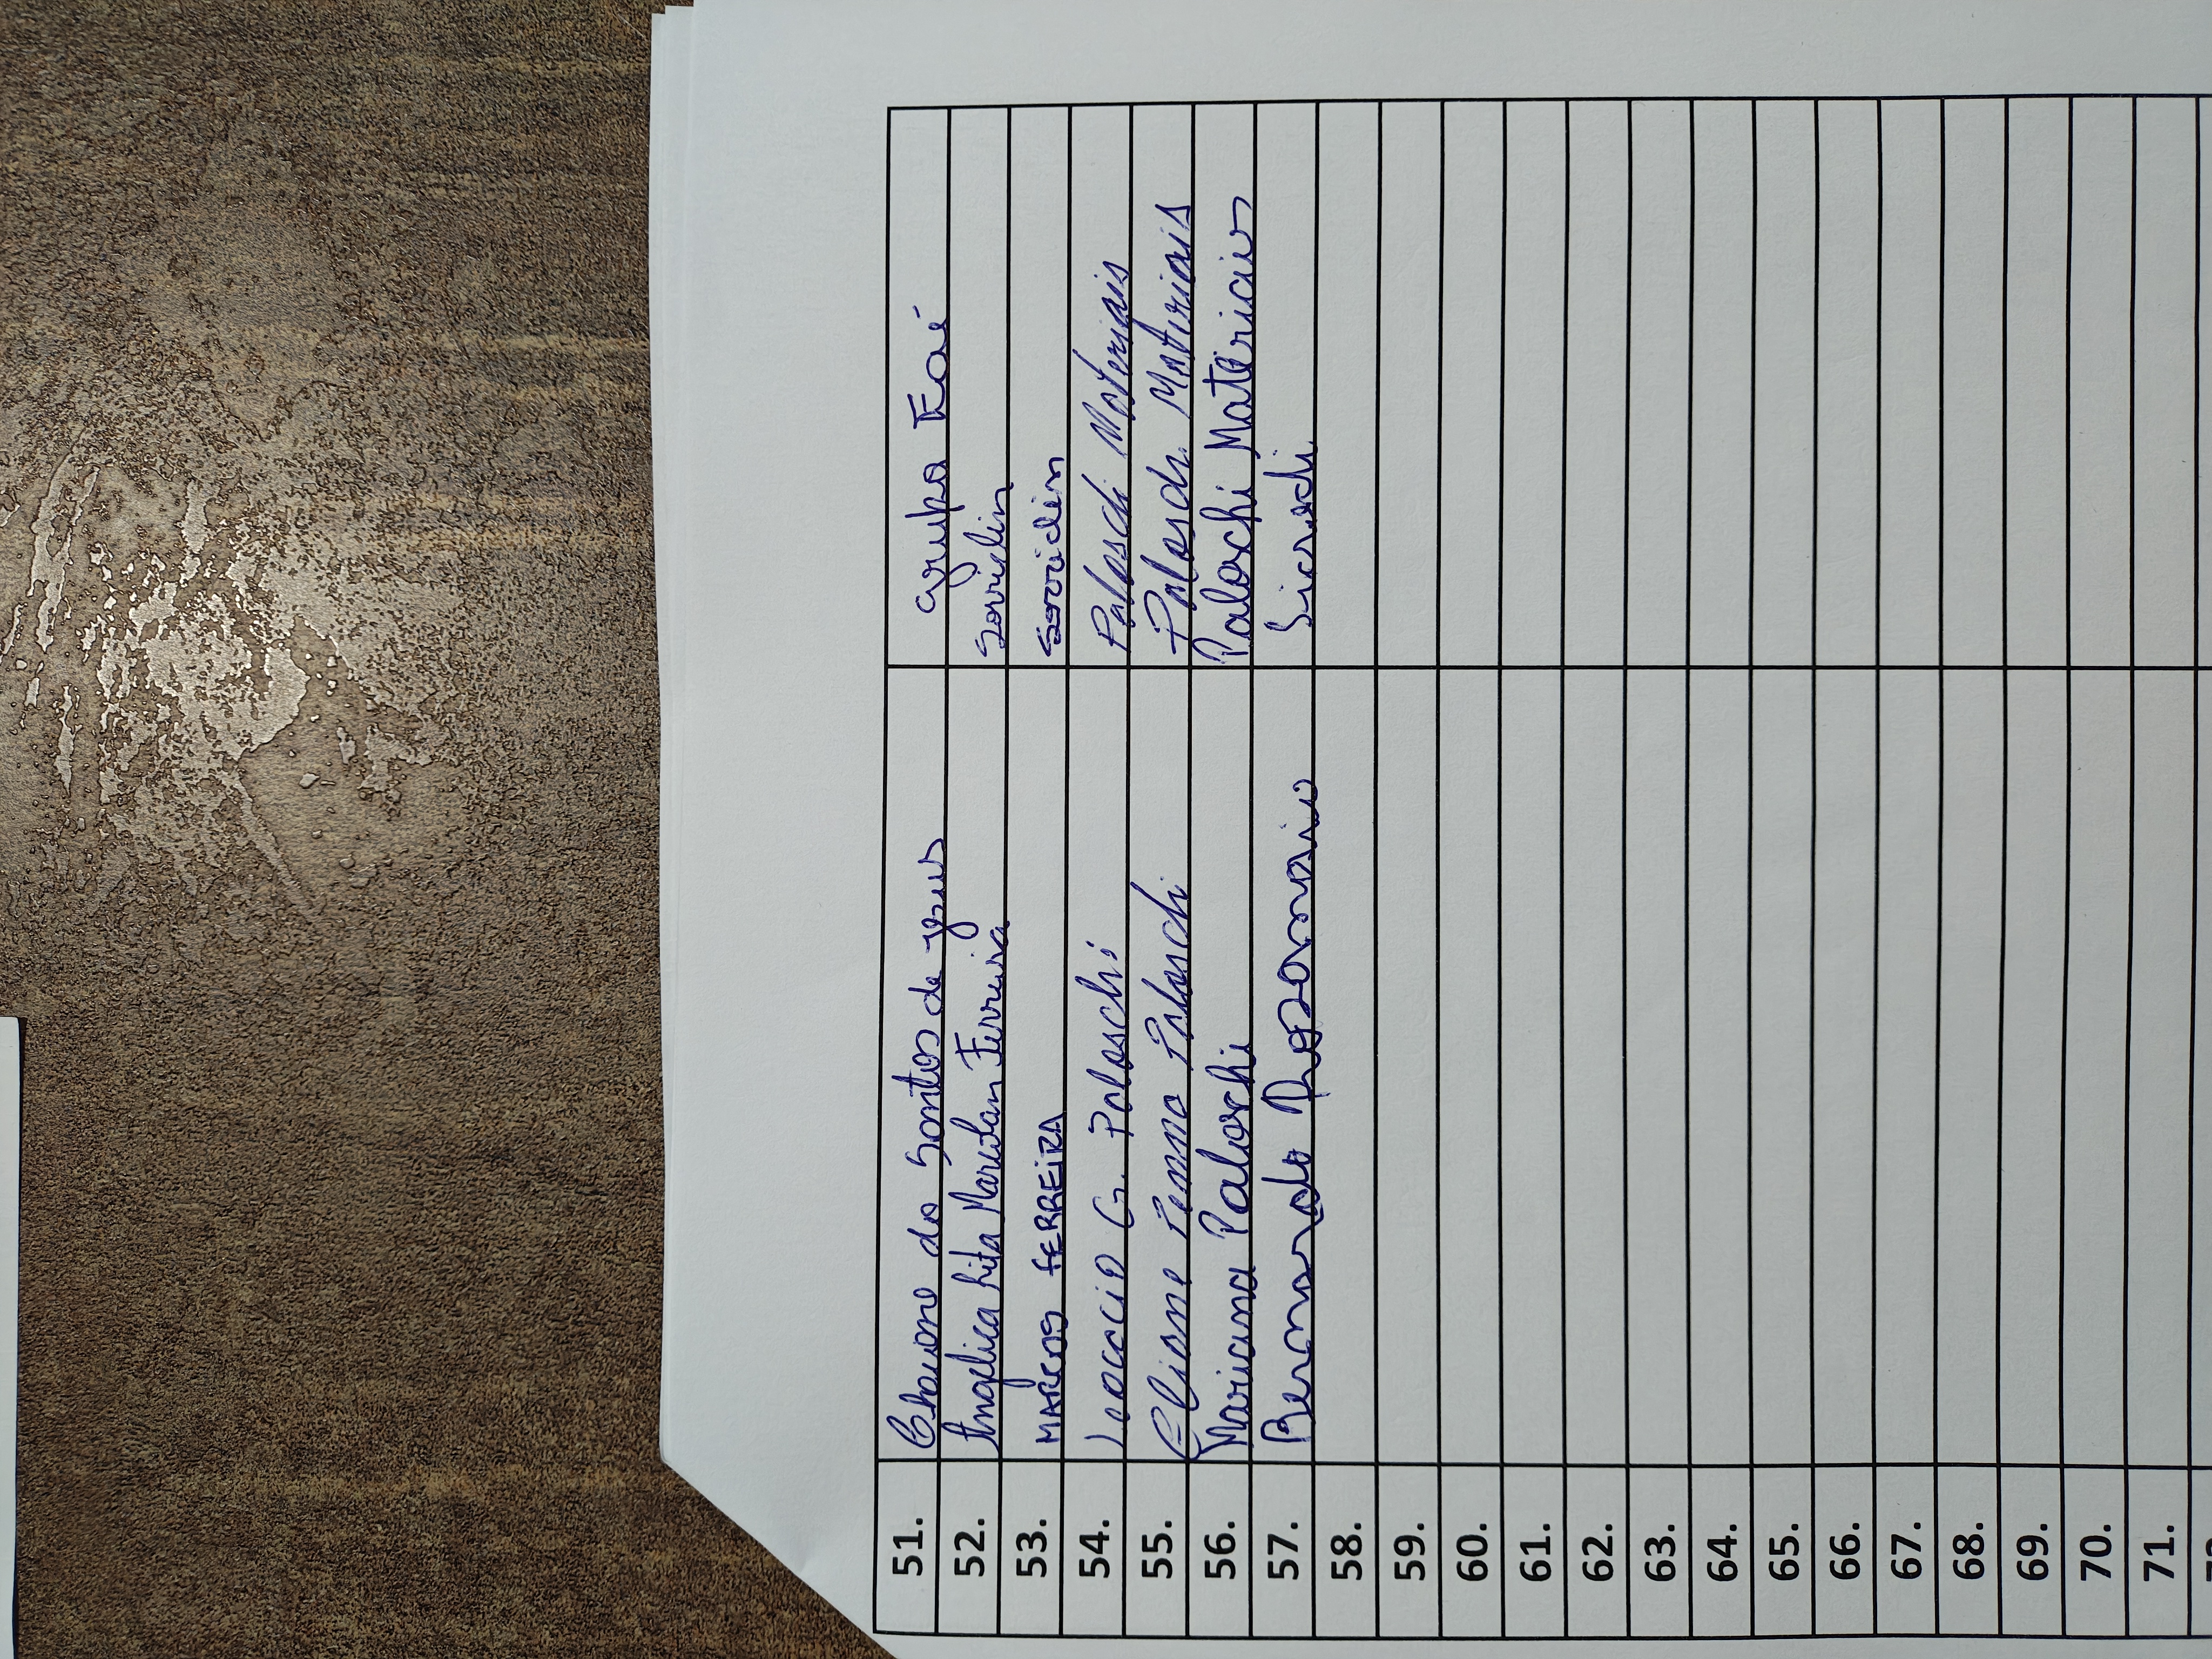 51. do Santos de jesus Grupo Faé
52. Angelica Rita Maritan Ferreira Sorridin
53. MARCOS FERREIRA Sorridem
54. G. Paloschi Paloschi Materiais
55. Eliane Paloschi Paloschi Materiais
56. Mariana Paloschi Paloschi Materiais
57. Bernardo Sicredi
58.
59.
60.
61.
62.
63.
64.
65.
66.
67.
68.
69.
70.
71.